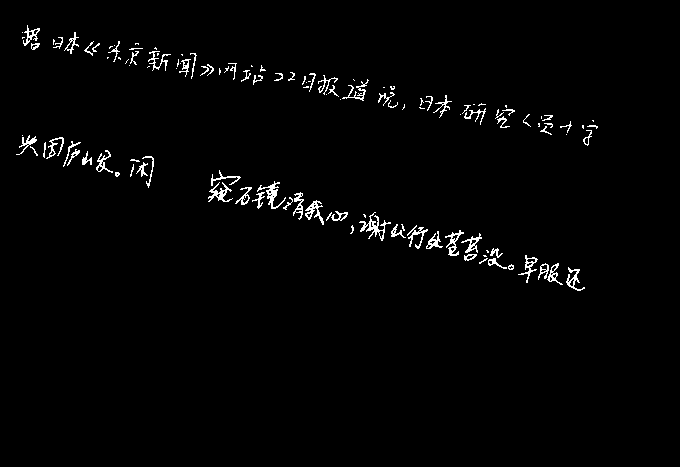 据日本《东京新闻》网站22日报道说,日本研究人员十字
兴因庐山发。闲
窥石镜清我心,谢公行处苍苔没。早服还